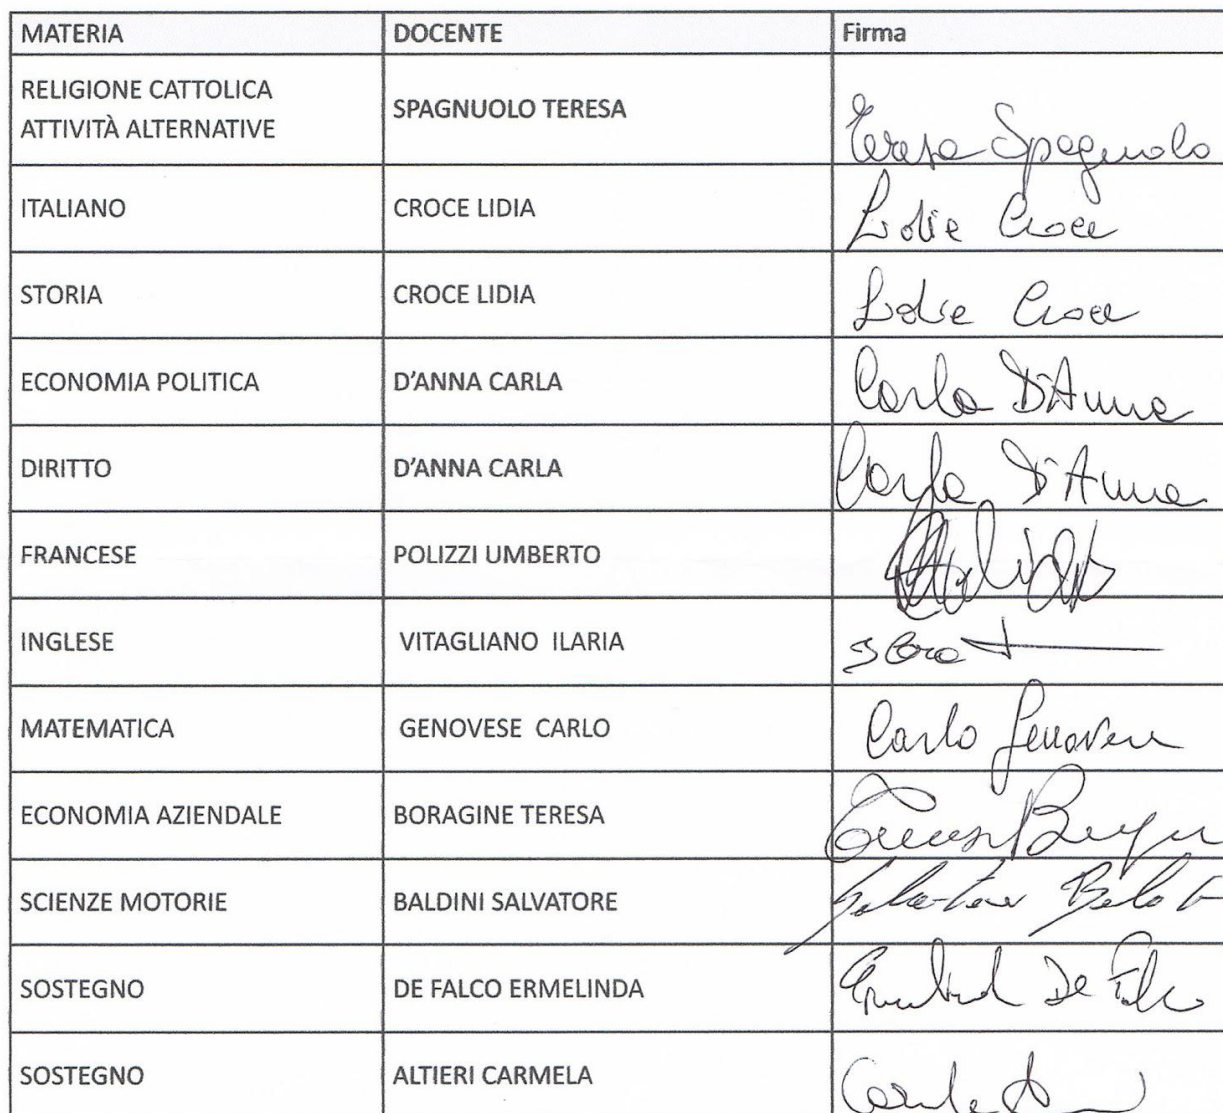 MATERIA DOCENTE Firma
RELIGIONE CATTOLICA
ATTIVITÀ ALTERNATIVE SPAGNUOLO TERESA Teresa Spagnuolo
ITALIANO CROCE LIDIA Lidia Croce
STORIA CROCE LIDIA Lidia Croce
ECONOMIA POLITICA D'ANNA CARLA Carla D'Anna
DIRITTO D'ANNA CARLA Carla D'Anna
FRANCESE POLIZZI UMBERTO
INGLESE VITAGLIANO ILARIA
MATEMATICA GENOVESE CARLO Carlo Genovese
ECONOMIA AZIENDALE BORAGINE TERESA
SCIENZE MOTORIE BALDINI SALVATORE
SOSTEGNO DE FALCO ERMELINDA De Falco
SOSTEGNO ALTIERI CARMELA